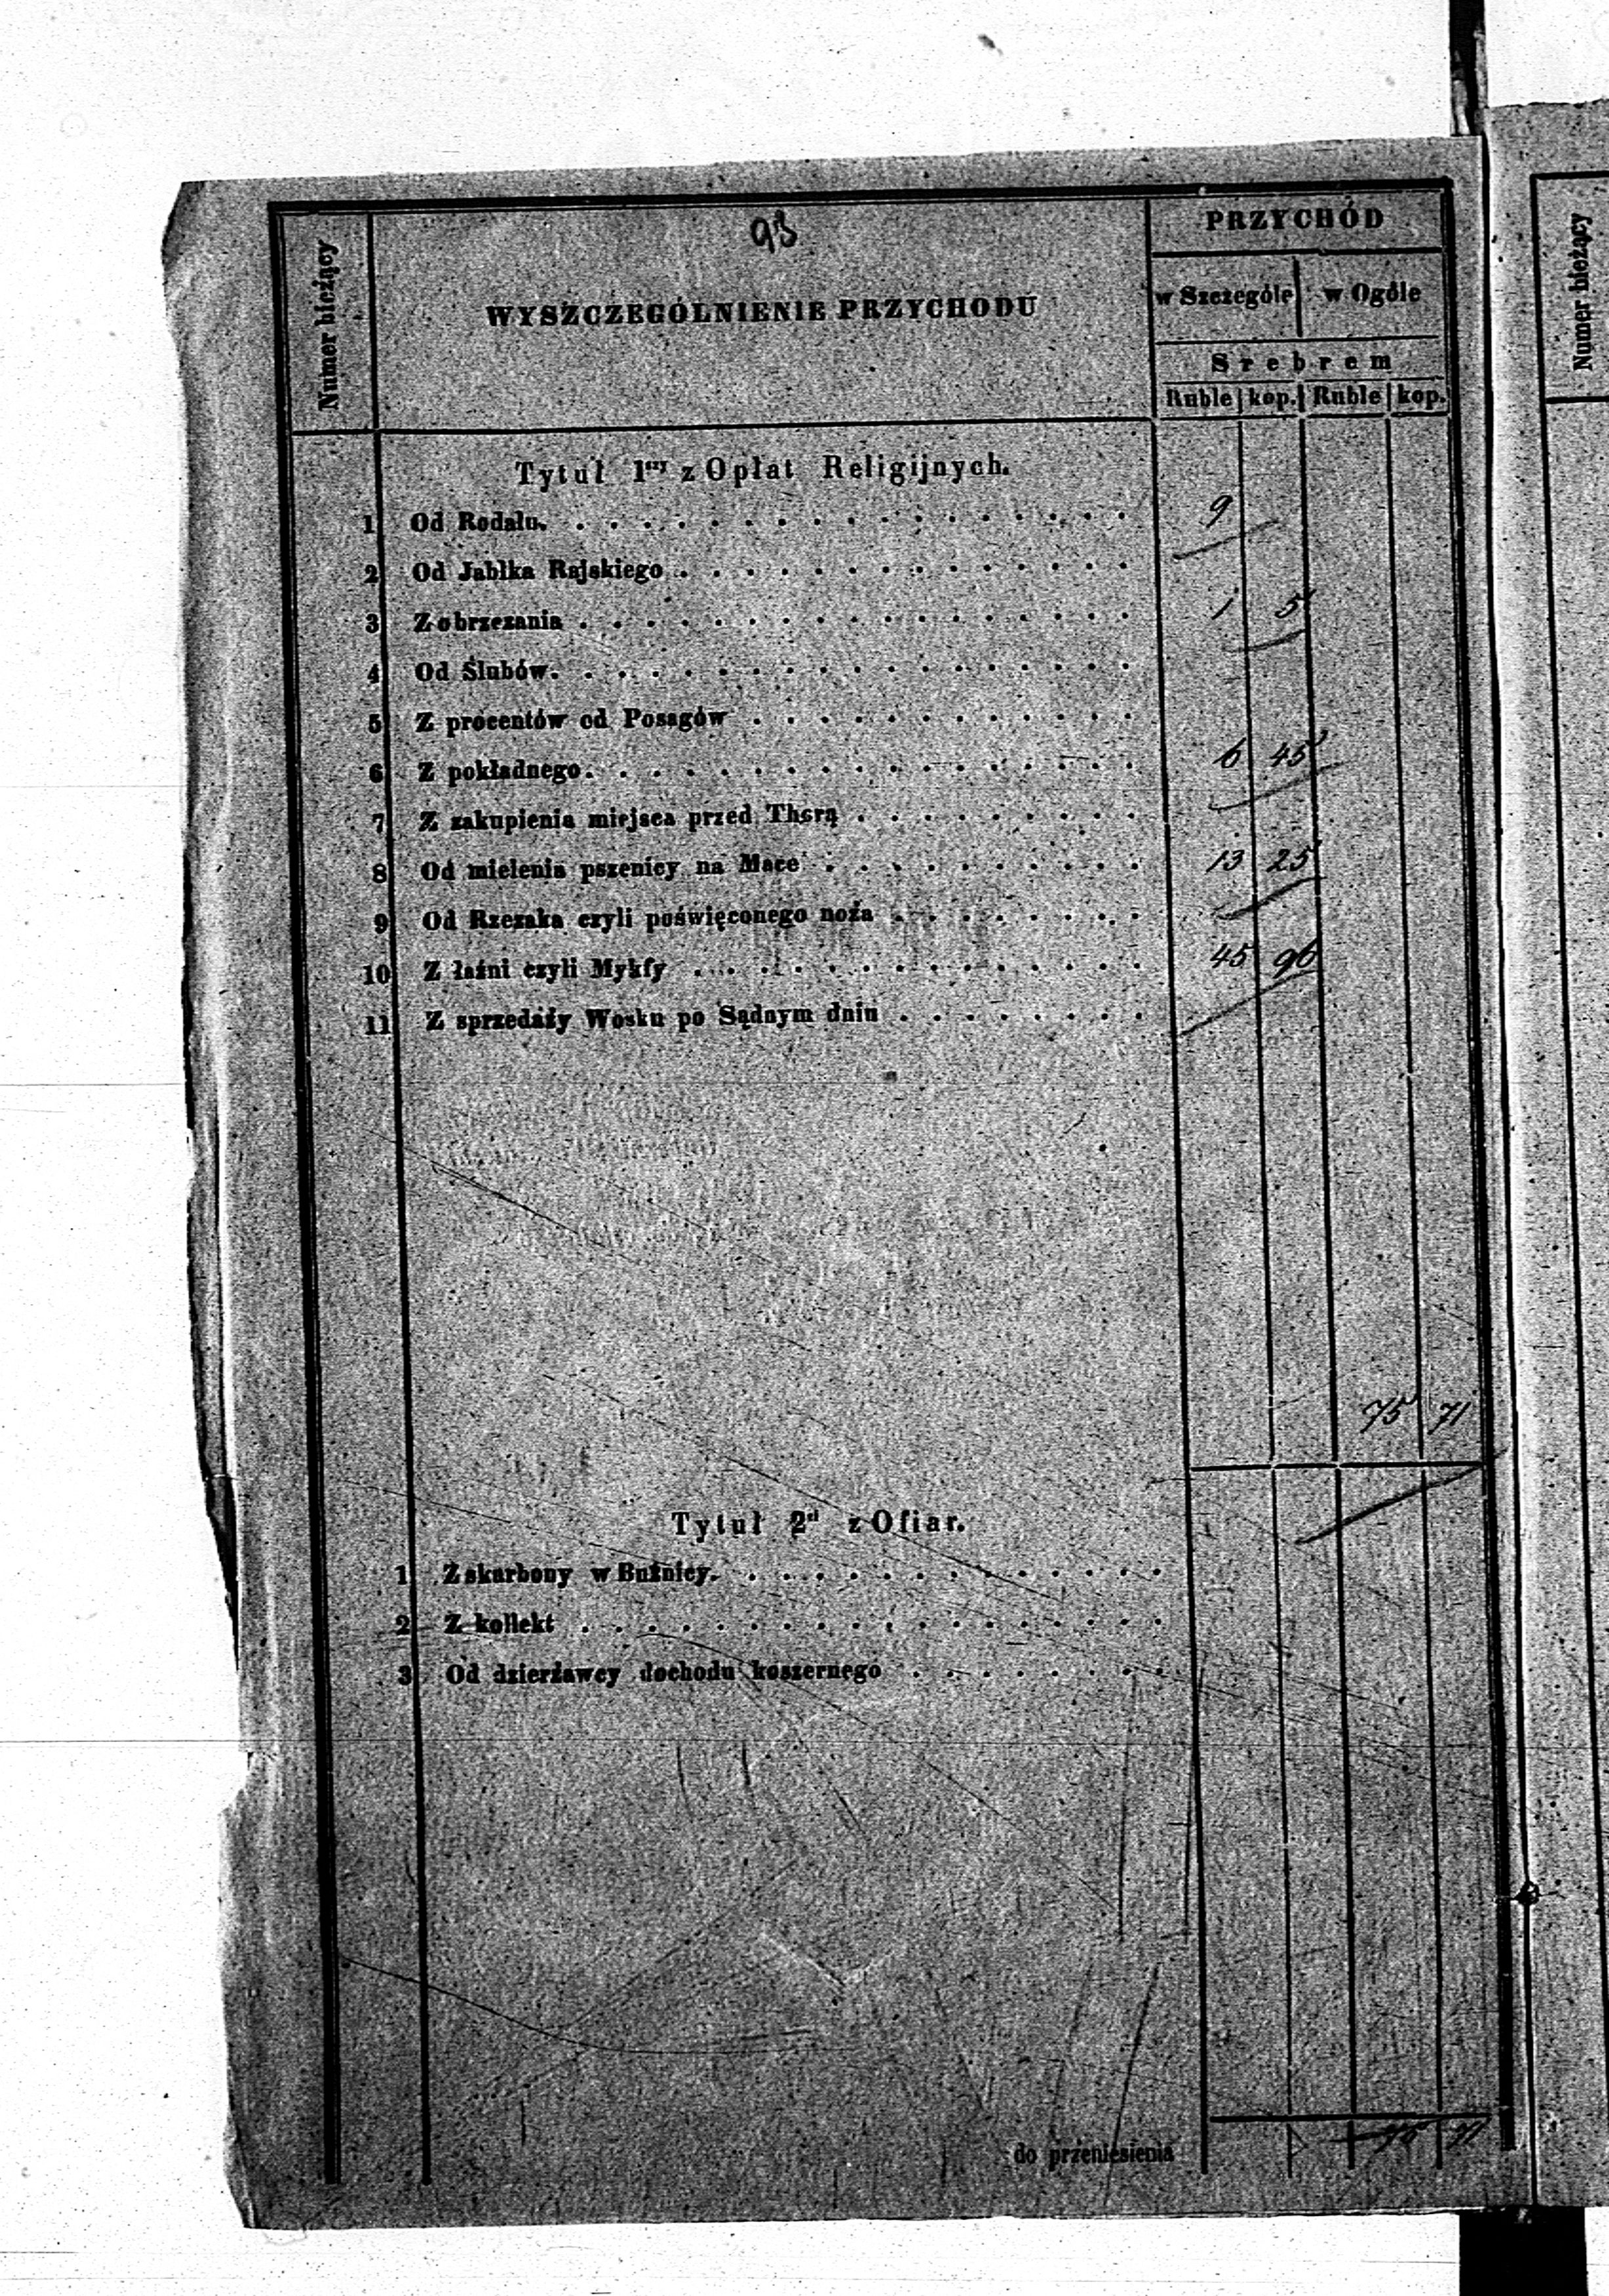 93
Numer bieżący
WYSZCZEGÓLNIENIE PRZYCHODU
PRZYCHÓD
w Szczególe w Ogóle
Srebrem
Ruble kop. Ruble kop.
Tytuł 1szy z Opłat Religijnych.
1 Od Rodału. 9
2 Od Jabłka Rajskiego
3 Z obrzezania 1 5
4 Od Ślubów.
5 Z procentów od Posagów
6 Z pokładnego. 6 45
7 Z zakupienia miejsca przed Thorą
8 Od mielenia pszenicy na Mace 13 25
9 Od Rzezaka czyli poświęconego noża
10 Z łaźni czyli Mykfy 45 96
11 Z sprzedaży Wosku po Sądnym dniu
75 71
Tytuł 2gi z Ofiar.
1 Z skarbony w Bużnicy.
2 Z kollekt
3 Od dzierżawcy dochodu koszernego
do przeniesienia 75 71
Numer bieżący